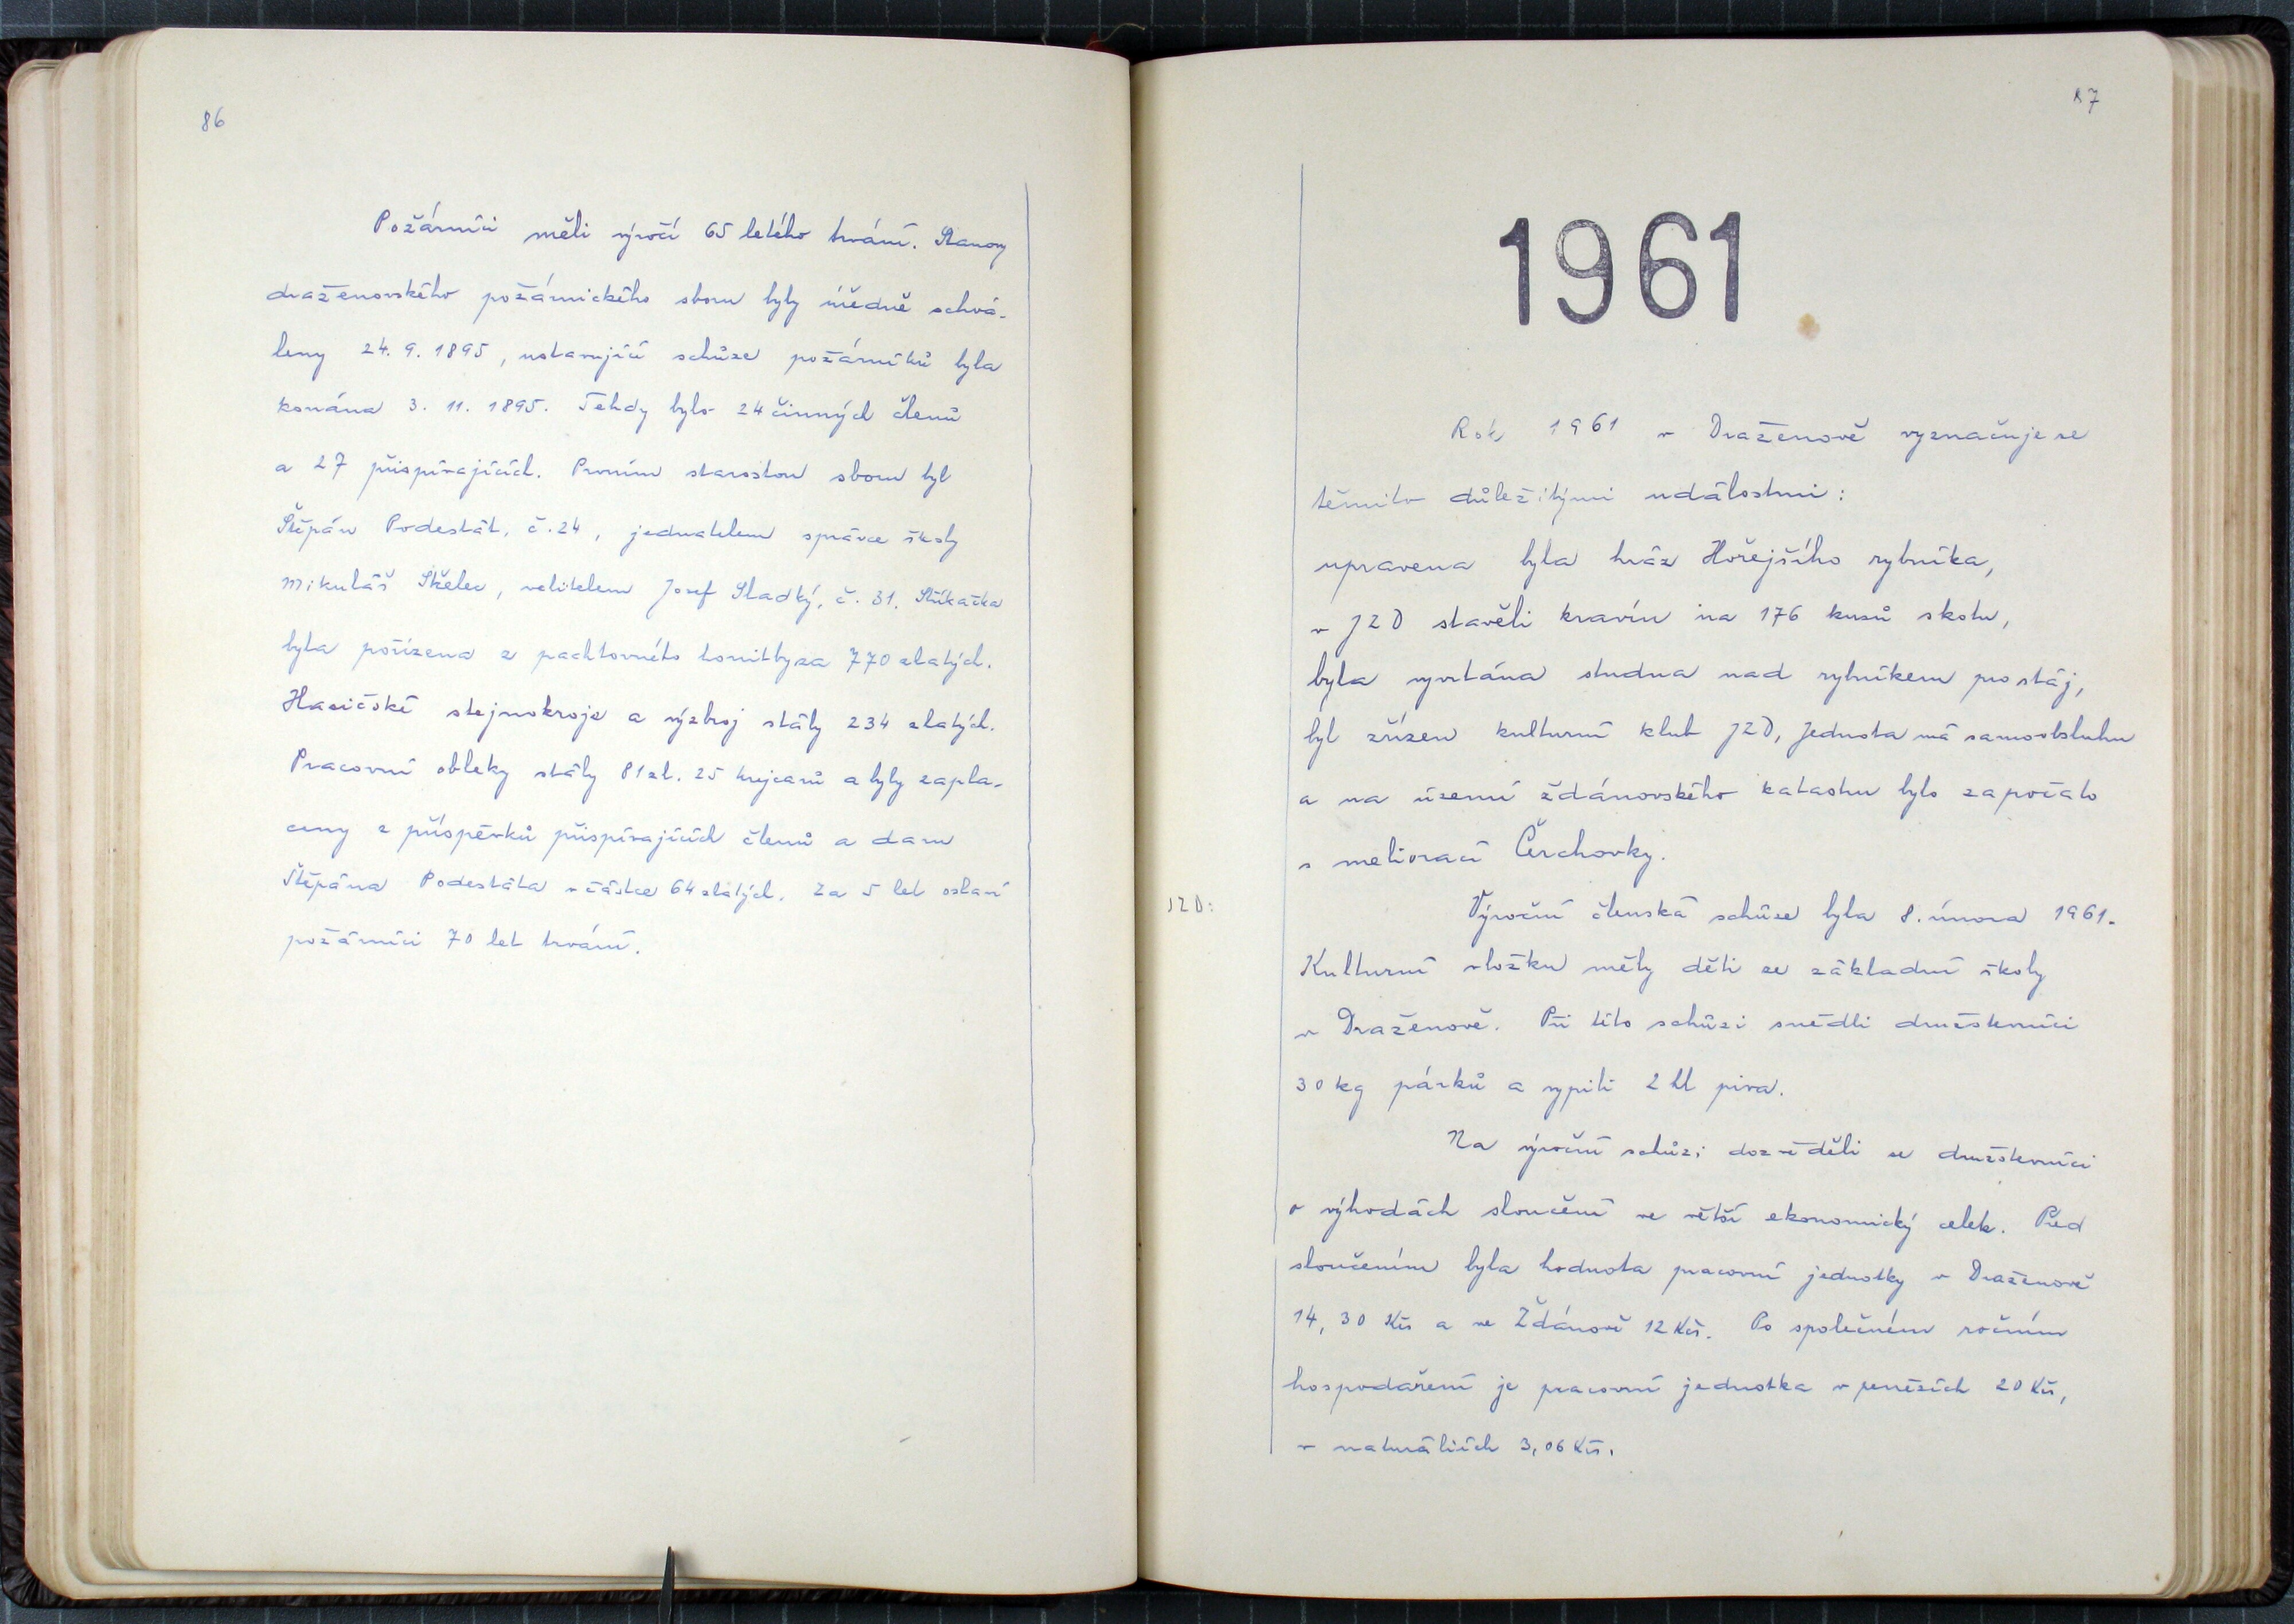 86
Požárníci měli výročí 65 letého trvání. Stanovy
draženovského požárnického sboru byly úředně schvá-
leny 24. 9. 1895, ustavující schůze požárníků byla
konána 3. 11. 1895. Tehdy bylo 24 činných členů
a 27 přispívajících. Prvním starostou sboru byl
Štěpán Podestát, č. 24, jednatelem správce školy
Mikuláš Střelec, velitelem Josef Sladký, č. 31. Stříkačka
byla pořízena z pachtovného honitby za 770 zlatých.
Hasičské stejnokroje a výzbroj stály 234 zlatých.
Pracovní obleky stály 81 zl. 25 krejcarů a byly zapla-
ceny z příspěvků přispívajících členů a daru
Štěpána Podestáta v částce 64 zlatých. Za 5 let oslaví
požárníci 70 let trvání.
87
1961
Rok 1961 v Draženově vyznačuje se
těmito důležitými událostmi:
upravena byla hráz Hořejšího rybníka,
v JZD stavěli kravín na 176 kusů skotu,
byla vyvrtána studna nad rybníkem pro stáj,
byl zřízen kulturní klub JZD, Jednota má samoobsluhu
a na území ždánovského katastru bylo započato
s meliorací Čerchovky.
JZD:
Výroční členská schůze byla 8. února 1961.
Kulturní vložku měly děti ze základní školy
v Draženově. Při této schůzi snědli družstevníci
30 kg párků a vypili 2 hl piva.
Na výroční schůzi dozvěděli se družstevníci
o výhodách sloučení ve větší ekonomický celek. Před
sloučením byla hodnota pracovní jednotky v Draženově
14,30 Kčs a ve Ždánově 12 Kčs. Po společném ročním
hospodaření je pracovní jednotka v penězích 20 Kčs,
v naturáliích 3,06 Kčs.